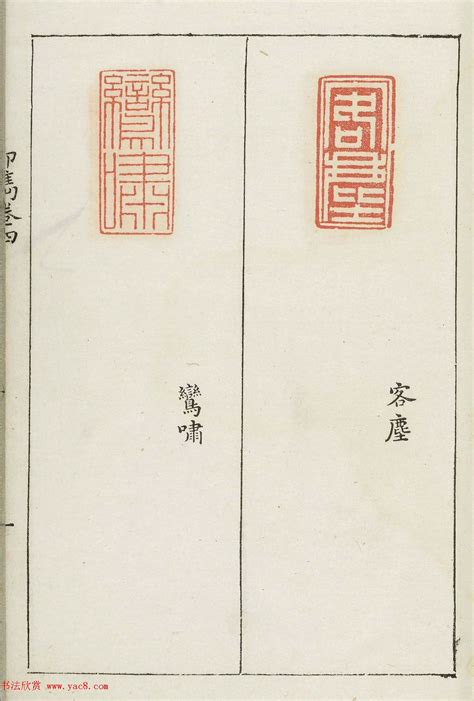 客塵
客塵
鸞嘯
鸞嘯
印雋卷四
一
书法欣赏 www.yac8.com